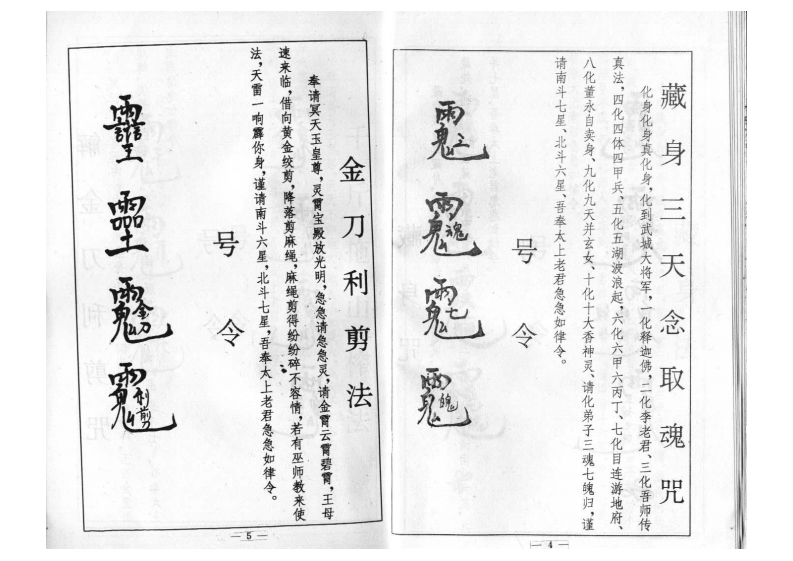 藏身三天念取魂咒
化身化身真化身，化到武城大将军，一化释迦佛，二化李老君、三化吾师传
真法，四化四体四甲兵，五化五湖波浪起，六化六甲六丙丁、七化目连游地府、
八化董永自卖身、九化九天并玄女、十化十大香神灵、请化弟子三魂七魄归，谨
请南斗七星、北斗六星、吾奉太上老君急急如律令。
号令
4
金刀利剪法
奉请冥天玉皇尊，灵霄宝殿放光明，急急请急急灵，请金霄云霄碧霄，王母
速来临，借向黄金绞剪，降落剪麻绳，麻绳剪得纷纷碎不容情，若有巫师教来使
法，天雷一响霹你身，谨请南斗六星，北斗七星，吾奉太上老君急急如律令。
号令
5